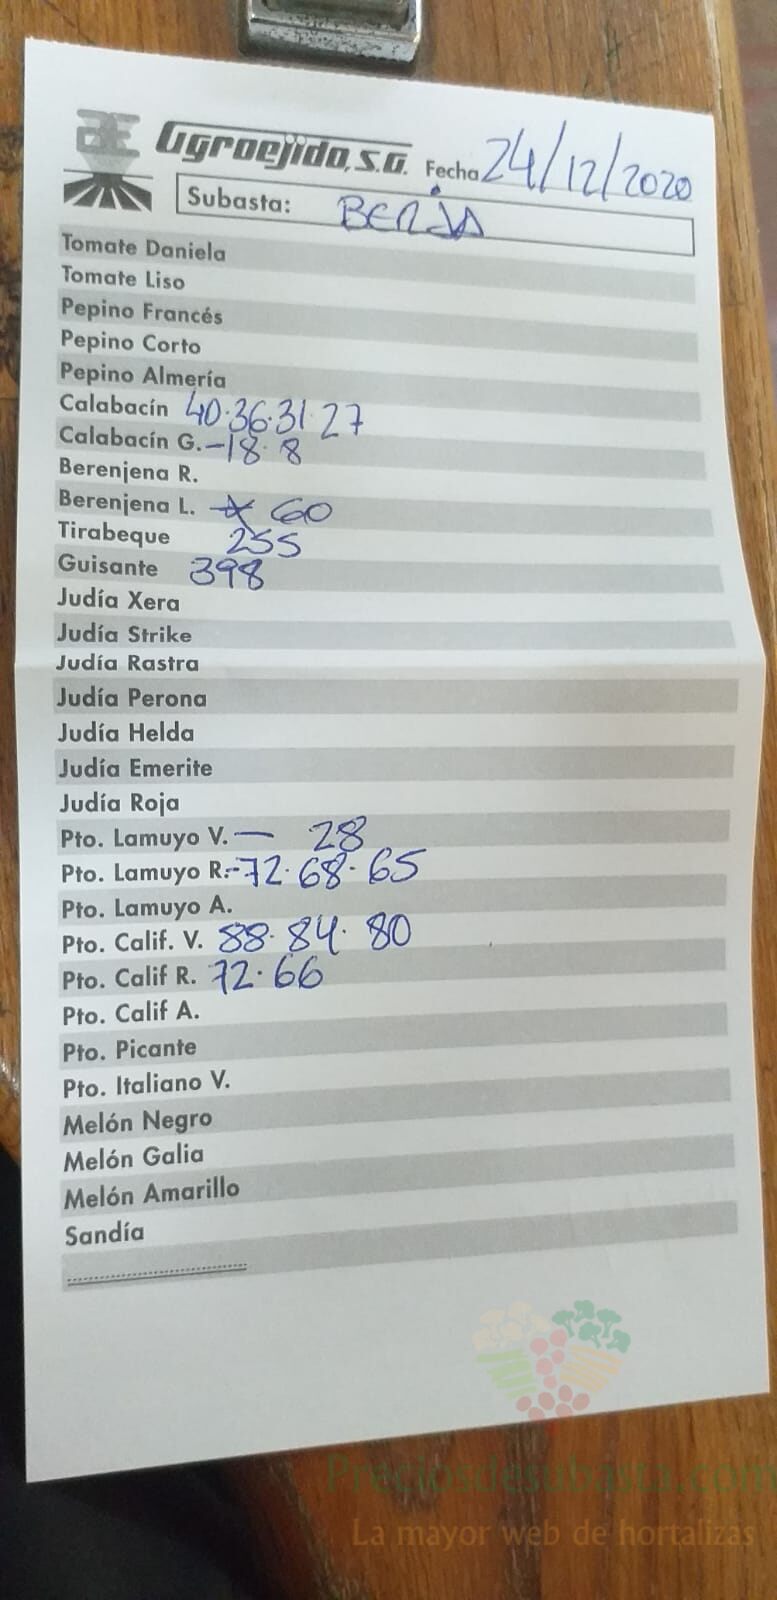 AE Agroejido, S.A. Fecha 24/12/2020
Subasta: BERJA
Tomate Daniela
Tomate Liso
Pepino Francés
Pepino Corto
Pepino Almería
Calabacín 40·36·31·27
Calabacín G.-18·8
Berenjena R.
Berenjena L. 60
Tirabeque 255
Guisante 398
Judía Xera
Judía Strike
Judía Rastra
Judía Perona
Judía Helda
Judía Emerite
Judía Roja
Pto. Lamuyo V. — 28
Pto. Lamuyo R.-72·68·65
Pto. Lamuyo A.
Pto. Calif. V. 88·84·80
Pto. Calif R. 72·66
Pto. Calif A.
Pto. Picante
Pto. Italiano V.
Melón Negro
Melón Galia
Melón Amarillo
Sandía
Preciosdesubasta.com
La mayor web de hortalizas